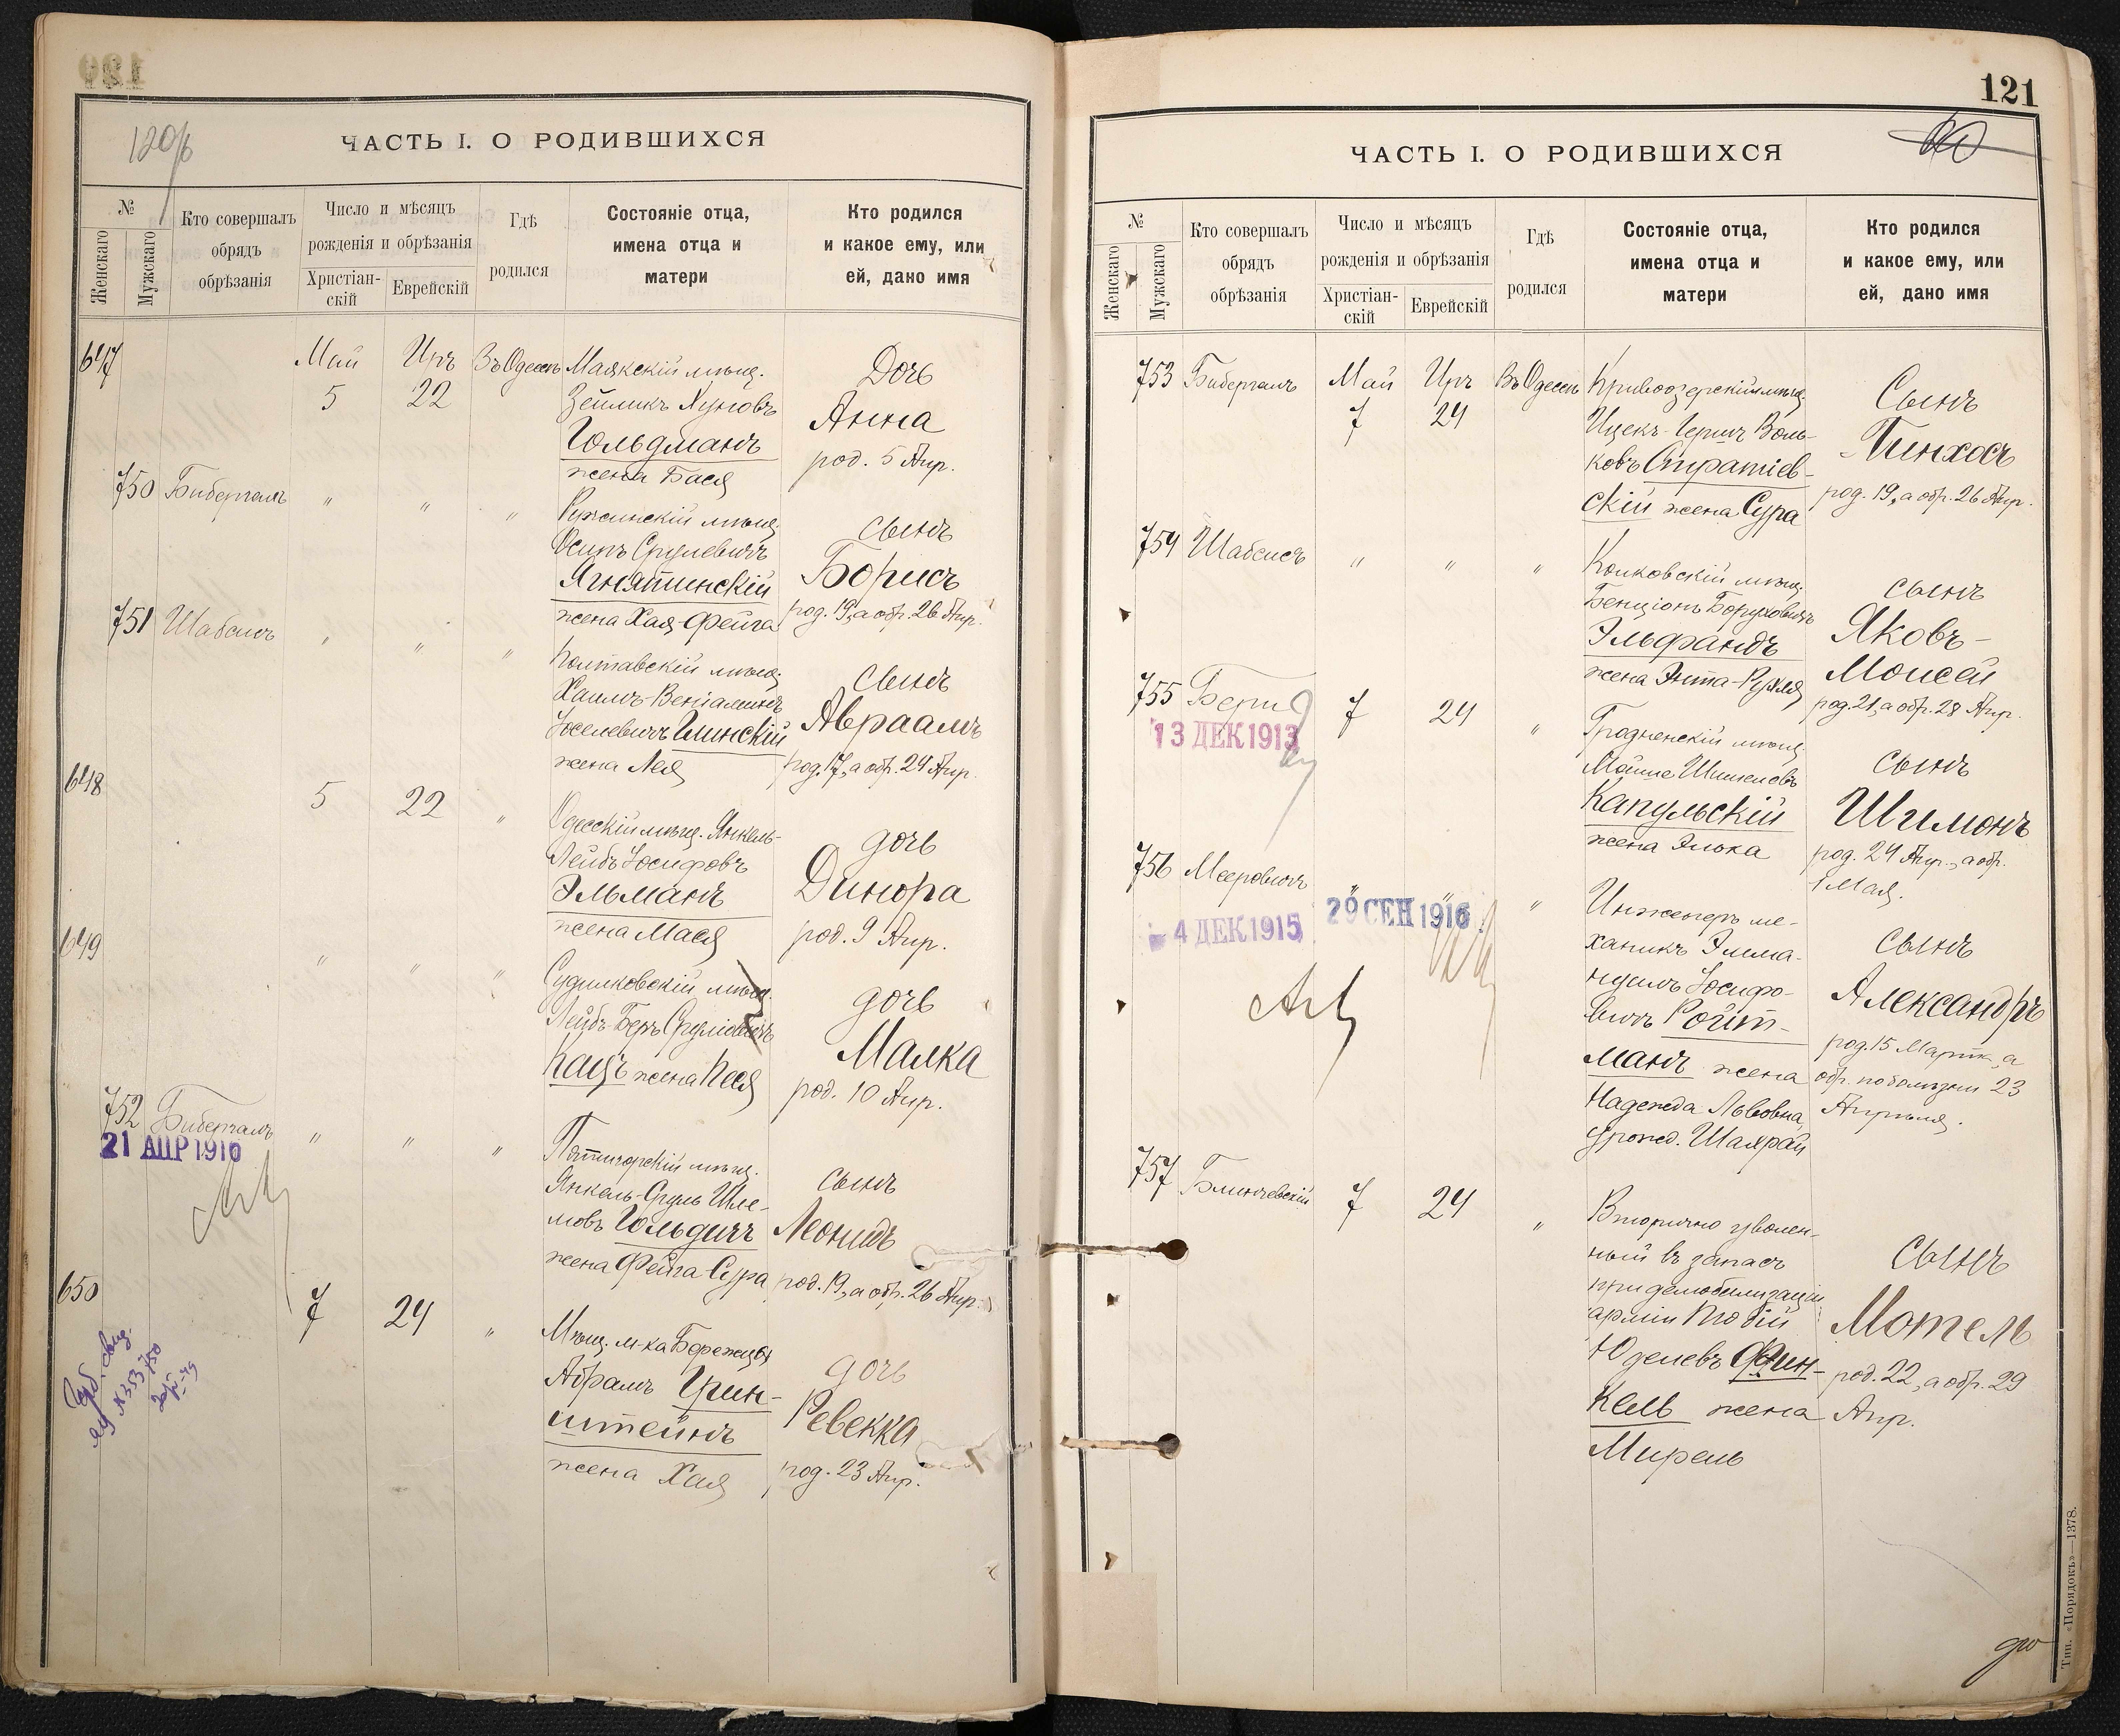 120/б
ЧАСТЬ I. О РОДИВШИХСЯ
№
Женскаго
Мужскаго
Кто совершалъ
обрядъ
обрѣзанія
Число и мѣсяцъ
рожденія и обрѣзанія
Христіан-
скій
Еврейскій
Гдѣ
родился
Состояніе отца,
имена отца и
матери
Кто родился
и какое ему, или
ей, дано имя
647 Май Иръ Въ Одессѣ Маякскій мѣщ. Дочь
5 22 Зейликъ Хуновъ Анна
Гольдманъ род. 5 Апр.
жена Бася
750 Бибергалъ " " " Ружинскій мѣщ. сынъ
Осипъ Срулевичъ Борисъ
Ягнятинскій род. 19, а обр. 26 Апр.
жена Хая-Фейга
751 Шабсисъ " " " Полтавскій мѣщ. сынъ
Хаимъ-Веніаминъ Авраамъ
Іоселевичъ Глинскій род. 17, а обр. 24 Апр.
жена Лея
648 5 22 " Одесскій мѣщ. Янкель- дочь
Лейбъ Іосифовъ Динора
Эльманъ род. 9 Апр.
жена Мася
649 " " " Судилковскій мѣщ. дочь
Лейбъ-Беръ Сруліовичъ Малка
Кацъ жена Песя род. 10 Апр.
752 Бибергалъ " " " Пятигорскій мѣщ. сынъ
21 АПР 1916
Янкель-Сруль Шле-
мовъ Гольдичъ Леонидъ
жена Фейга Сура род. 19, а обр. 26 Апр.
650 7 24 " Мѣщ. м-ка Бережцы дочь
Абрамъ Грин- Ревекка
штейнъ
жена Хая род. 23 Апр.
№ 353750
121
ЧАСТЬ I. О РОДИВШИХСЯ
№
Женскаго
Мужскаго
Кто совершалъ
обрядъ
обрѣзанія
Число и мѣсяцъ
рожденія и обрѣзанія
Христіан-
скій
Еврейскій
Гдѣ
родился
Состояніе отца,
имена отца и
матери
Кто родился
и какое ему, или
ей, дано имя
753 Бибергалъ Май Иръ Въ Одессѣ Кривоозерскій мѣщ. Сынъ
7 24 Ицекъ-Гершъ Воль- Пинхосъ
ковъ Стратіев- род. 19, а обр. 26 Апр.
скій жена Сура
754 Шабсисъ " " " Колковскій мѣщ. сынъ
Бенціонъ Боруховичъ Яковъ-
Эльфандъ Моисей
жена Энта-Рухля род. 21, а обр. 28 Апр.
755 7 24 " Гродненскій мѣщ. сынъ
13 ДЕК 1913
Капульскій Шимонъ
жена Элька род. 24 Апр., а обр.
1 Мая.
756 Мееровичъ " " " Инженеръ ме- сынъ
4 ДЕК 1915 29 СЕН 1916
ханикъ Эмма- Александръ
нуилъ Іосифо- род. 15 Марта, а
вичъ Ройт- обр. по болѣзни 23
манъ жена Апрѣля.
Надежда Львовна,
урожд. Шапрай
757 Блинчевскій 7 24 " Вторично уволен- сынъ
ный въ запасъ
при демобилизаціи Мотель
арміи Товій род. 22, а обр. 29
Юделевъ Фин- Апр.
кель жена
Мирель
Тип. «Порядокъ»—1378.